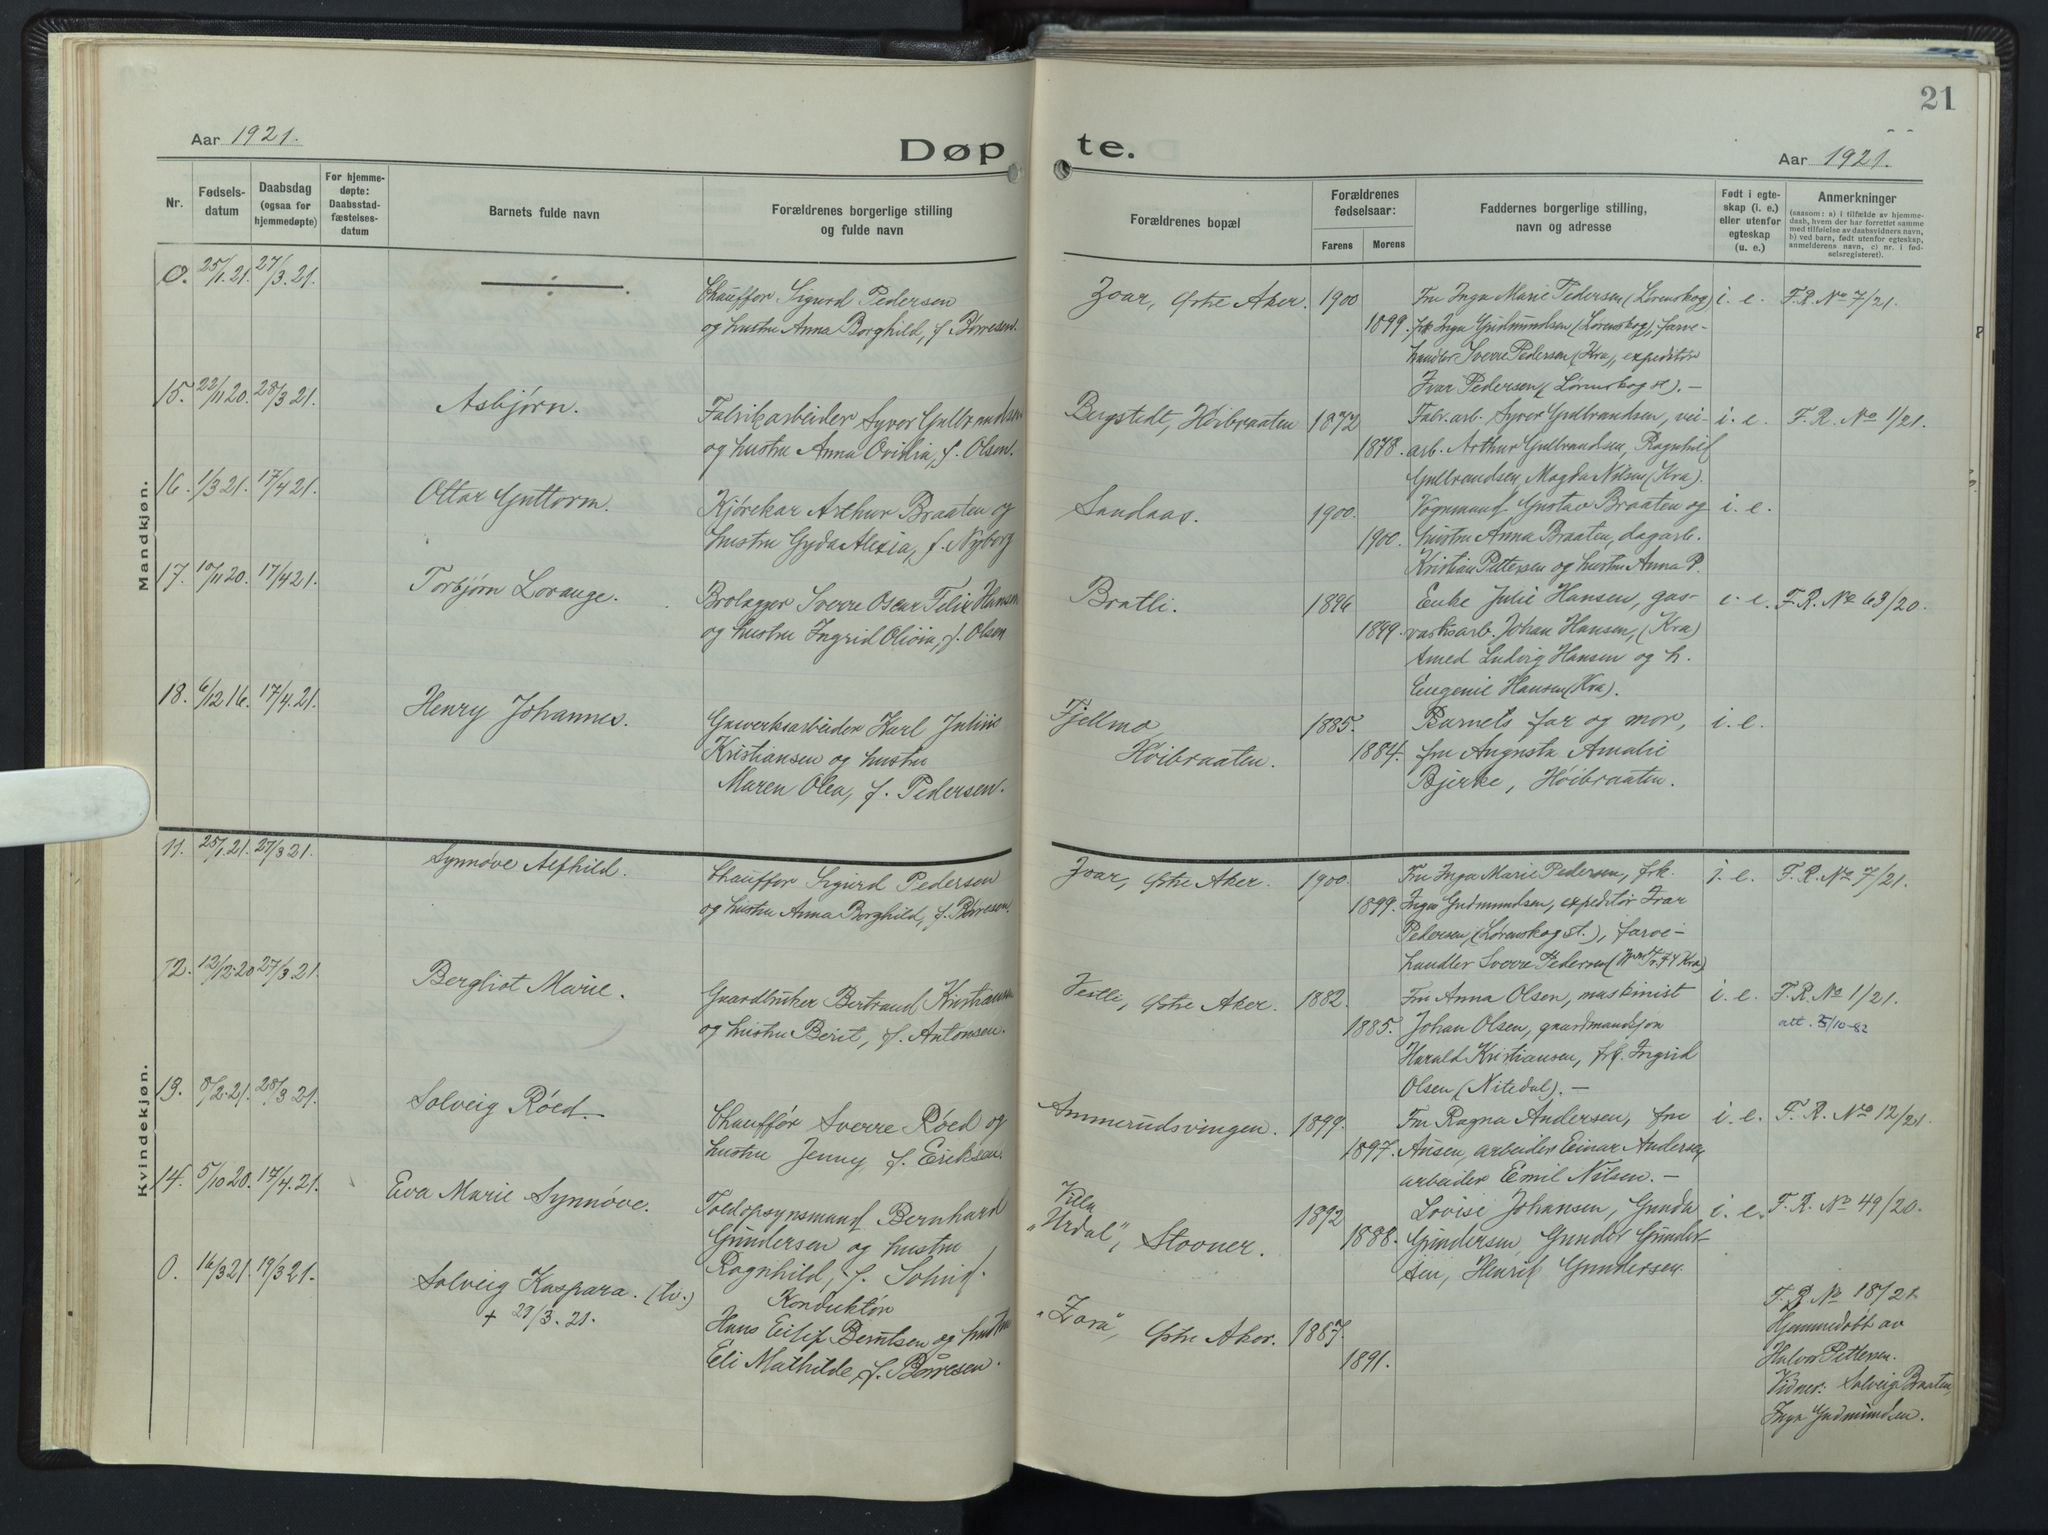 21
Aar 1921.
Døpte.
Aar 1921.
Nr.
Fødsels-
datum
Daabsdag
(ogsaa for
hjemmedøpte)
For hjemme-
døpte:
Daabsstad-
fæstelses-
datum
Barnets fulde navn
Forældrenes borgerlige stilling
og fulde navn
Forældrenes bopæl
Forældrenes
fødselsaar:
Farens Morens
Faddernes borgerlige stilling,
navn og adresse
Født i egte-
skap (i. e.)
eller utenfor
egteskap
(u. e.)
Anmerkninger
(saasom: a) i tilfælde av hjemme-
daab, hvem der har forrettet samme
med tilføielse av daabsvidners navn,
b) ved barn, født utenfor egteskap,
anmelderens navn, c) nr. i fød-
selsregisteret).
Mandkjøn.
0. 25/1.21. 27/3.21.
Chauffør Sigurd Pedersen
og hustru Anna Borghild, f. Børresen.
Zoar, Østre Aker. 1900
1899.
Fru Inga Marie Pedersen (Lørenskog),
frk Inga Gudmundsen (Lørenskog), farve-
handler Sverre Pedersen (Kra, expeditør
Ivar Pedersen (Lørenskog st). —
i. e. F.R. No 7/21.
15. 22/11 20. 28/3 21.
Asbjørn.
Fabrikarbeider Syver Gulbrandsen
og hustru Anna Ovidia, f. Olsen.
Bergstedt, Høibraaten 1872
1878.
Fabr.arb. Syver Gulbrandsen, vei-
arb. Arthur Gulbrandsen, Ragnhild
Gulbrandsen, Magda Nilsen (Kra).
i. e. F. R. No 1/21.
16. 1/3 21. 17/4 21.
Ottar Guttorm.
Kjørekar Arthur Braaten og
hustru Gyda Alexia, f. Nyborg
Sandaas. 1900.
1900.
Vognmand Gustav Braaten og
hustru Anna Braaten, dagarb.
Kristian Pettersen og hustru Anna P.
i. e.
17. 10/11 20. 17/4 21.
Torbjørn Lorange.
Brolægger Sverre Oscar Felix Hansen
og hustru Ingrid Olivia, f. Olsen
Bratli. 1896
1899.
Enke Julie Hansen, gas-
verksarb. Johan Hansen, (Kra)
Amed Ludvig Hansen og h.
Eugenie Hansen (Kra).
i. e. F.R. No 63/20.
18. 6/12 16. 17/4.21.
Henry Johannes.
Gasverksarbeider Karl Julius
Kristiansen og hustru
Maren Olea, f. Pedersen.
Fjellmo,
Høibraaten. 1885.
1884.
Barnets far og mor,
fru Augusta Amalie
Bjerke, Høibraaten.
i. e.
Kvindekjøn.
11. 25/1.21. 27/3 21.
Synnøve Alfhild.
Chauffør Sigurd Pedersen
og hustru Anna Borghild, f. Børresen.
Zoar, Østre Aker. 1900.
1899.
Fru Inga Marie Pedersen, frk.
Inga Gudmundsen, expeditør Ivar
Pedersen, (Lørenskog st.), farve-
handler Sverre Pedersen Kra)
i. e. F.R. No 7/21.
12. 12/12-20 27/3.21.
Bergliot Marie.
Gaardbruker Bertrand Kristiansen
og hustru Berit, f. Antonsen.
Vestli, Østre Aker. 1882.
1885.
Fru Anna Olsen, maskinist
Johan Olsen, gaardmandsøn
Harald Kristiansen, frk. Ingrid
Olsen (Nitedal). —
i. e. F.R. No 1/21.
att. 5/10-82
13. 8/2.21. 28/3 21.
Solveig Røed.
Chauffør Sverre Røed og
hustru Jenny f. Eriksen.
Ammerudsvingen. 1899.
1897.
Fru Ragna Andersen, fru
Ausen, arbeider Einar Andersen,
arbeider Emil Nilsen. —
i. e. F. R. No 12/21.
14. 5/10 20. 17/4.21.
Eva Marie Synnøve.
Toldopsynsmand Bernhard
Gundersen og hustru
Ragnhild, f. Solvig.
Villa
"Urdal", Stovner. 1892
1888.
Lovise Johansen, Gunda
Gundersen, Gunder Gunder-
sen, Henrik Gundersen.
i. e. F. R. No 49/20.
0. 16/3 21. 19/3 21.
Solveig Kaspara. (tv.)
+ 29/3. 21.
Konduktør
Hans Eilif Berntsen og hustru
Eli Mathilde, f. Børresen.
"Zora", Østre Aker. 1887.
1891.
F. R. No 18/21.
Hjemmedøbt av
Halvor Pettersen.
Vidner: Solveig Braaten,
Inga Gudmundsen.